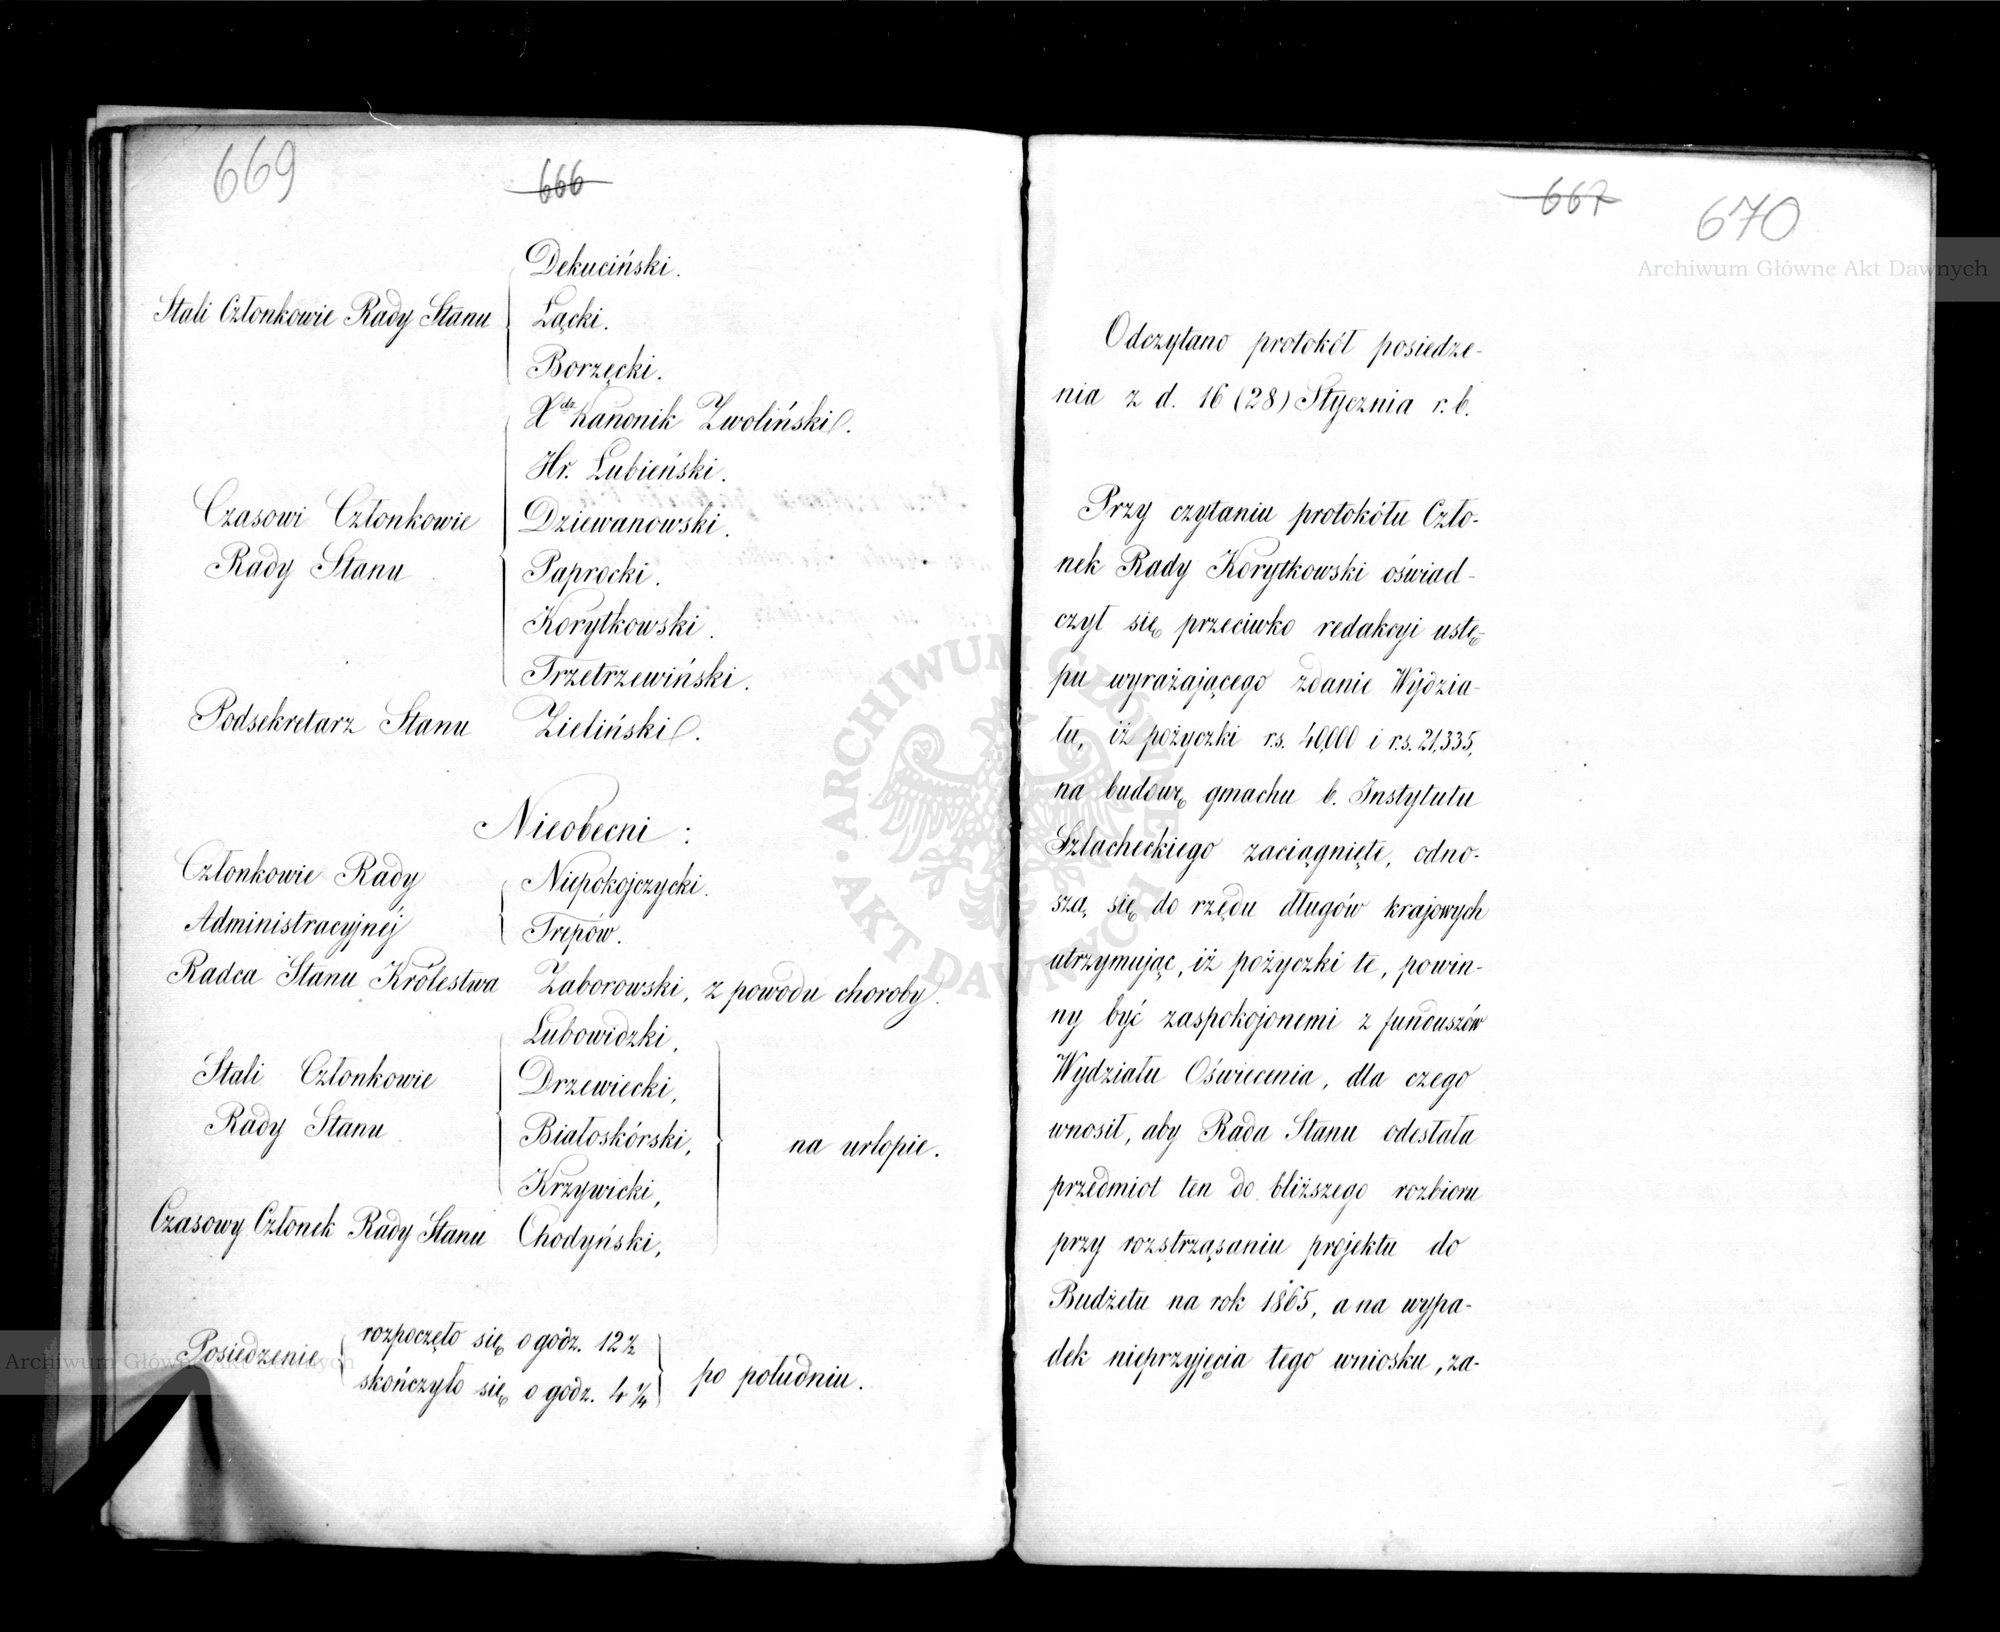 669
666
Dekuciński.
Stali Członkowie Rady Stanu
Łącki.
Borzęcki.
Xdz Kanonik Zwoliński.
Hr. Łubieński.
Czasowi Członkowie
Dziewanowski.
Rady Stanu
Paprocki.
Korytkowski.
Trzetrzewiński.
Podsekretarz Stanu Zieliński.
Nieobecni:
Członkowie Rady
Niepokojczycki.
Administracyjnéj
Trepów.
Radca Stanu Królestwa Zaborowski, z powodu choroby.
Lubowidzki,
Stali Członkowie
Drzewiecki,
Rady Stanu
Białoskórski,
na urlopie.
Krzywicki,
Czasowy Członek Rady Stanu Chodyński,
Posiedzenie
rozpoczęło się o godz. 12½
skończyło się o godz. 4¼
po południu.
667
670
Odczytano protokół posiedze-
nia z d. 16 (28) Stycznia r. b.
Przy czytaniu protokółu Czło-
nek Rady Korytkowski oświad-
czył się przeciwko redakcyi ustę-
pu wyrażającego zdanie Wydzia-
łu, iż pożyczki r.s. 40,000 i r.s. 21,335,
na budowę gmachu b. Instytutu
Szlacheckiego zaciągnięte, odno-
szą się do rzędu długów krajowych
utrzymując, iż pożyczki te, powin-
ny być zaspokojonemi z funduszów
Wydziału Oświecenia, dla czego
wnosił, aby Rada Stanu odesłała
przedmiot ten do bliższego rozbioru
przy roztrząsaniu projektu do
Budżetu na rok 1865, a na wypa-
dek nieprzyjęcia tego wniosku, za-
Archiwum Główne Akt Dawnych
Archiwum Główne Akt Dawnych
ARCHIWUM GŁÓWNE
AKT DAWNYCH